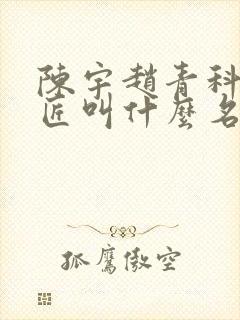 陳宇趙青科
匠叫什麼名
孤鷹傲空